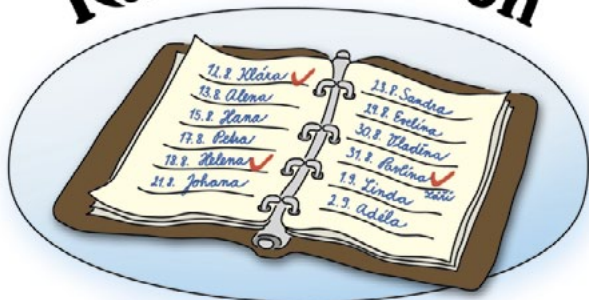 12.8. Klára
13.8. Alena
15.8. Hana
17.8. Petra
18.8. Helena
21.8. Johana
23.8. Sandra
29.8. Evelína
30.8. Vladěna
31.8. Pavlína
září
1.9. Linda
2.9. Adéla